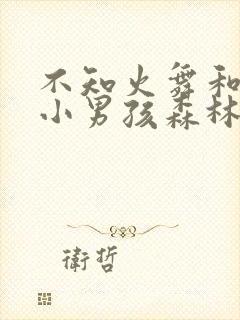 不知火舞和
小男孩森林
衛哲